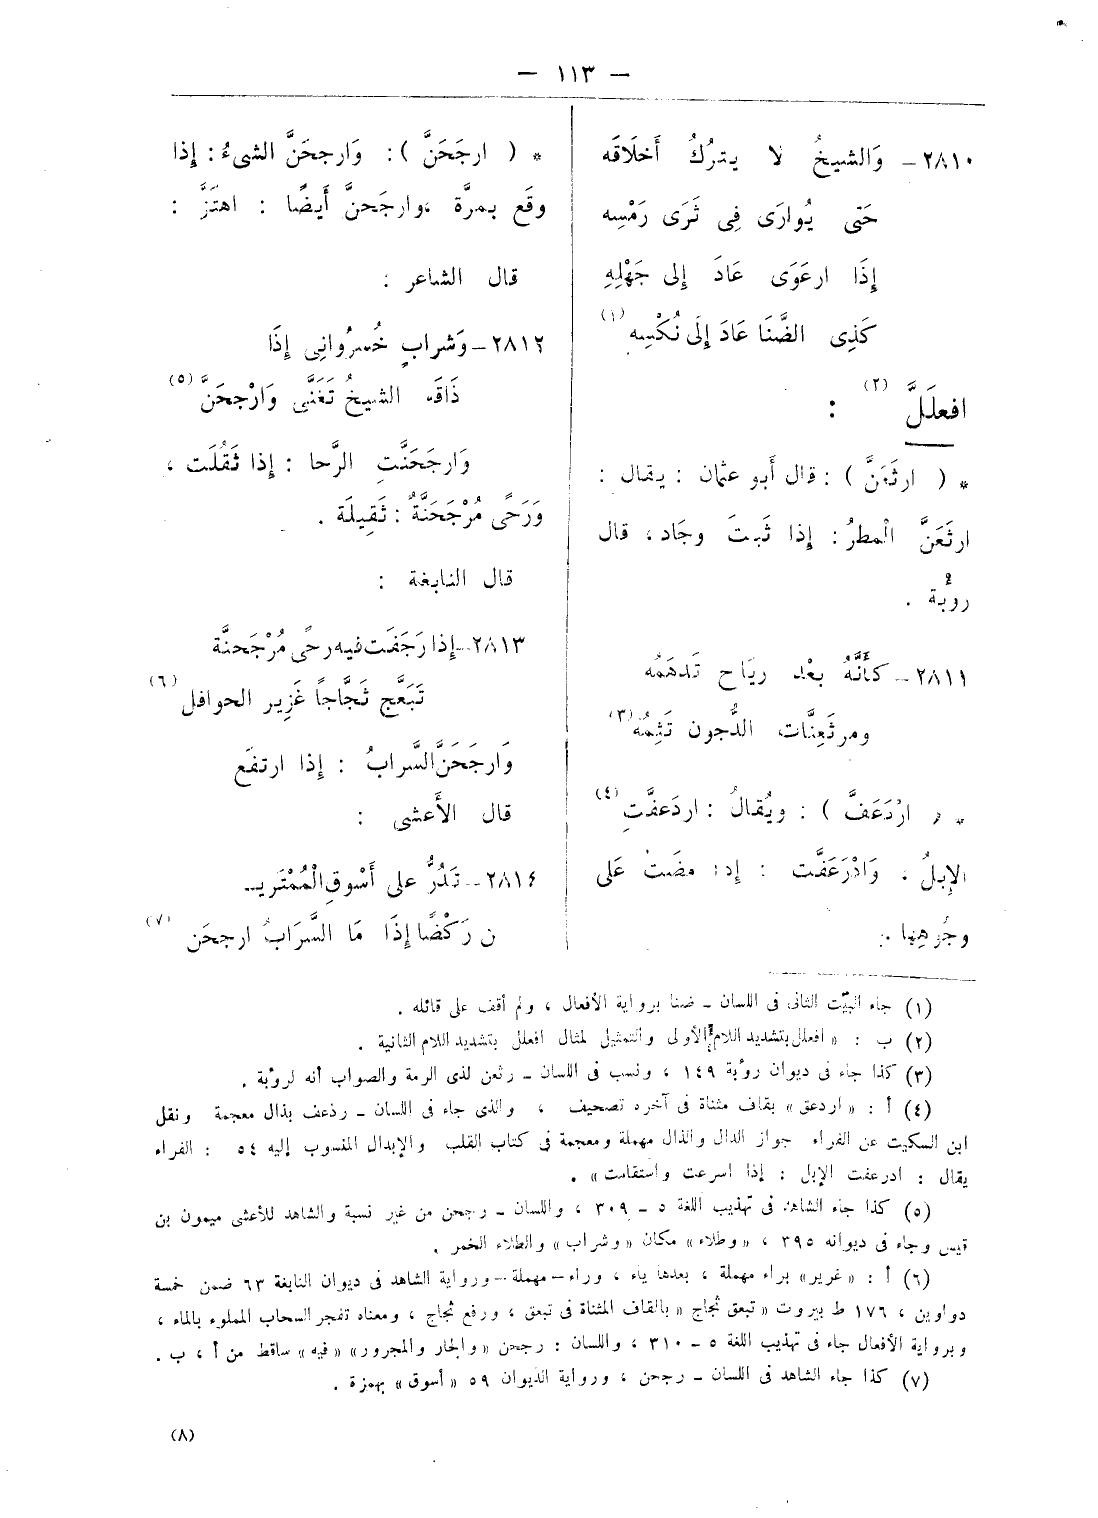 — ١١٣ —
٢٨١٠ — وَالشيخُ لا يتركُ أَخلَاقَه
حَتى يُوارَى فِى ثَرَى رَمْسِه
إِذَا ارعَوَى عَادَ إِلى جَهْلِهِ
كَذِى الضَّنَا عَادَ إِلَى نُكْسِه (١)
افعلَلَّ (٢) :
* ( ارثَعَنَّ ) : قال أَبو عثمان : يقال :
ارثَعَنَّ الْمطرُ : إِذا ثَبتَ وجَاد ، قال
رؤبة .
٢٨١١ — كأَنَّهُ بعْد ريَاح تَدهَمُه
ومرثَعِنَّات الدُّجون تَثِمُه (٣)
* ( ارْدَعَفَّ ) : ويُقالُ : اردَعفَّتِ (٤)
الإِبلُ ، وَاذْرَعَفَّت : إِذا مضَت عَلى
وجُوهِها .
* ( ارجَحَنَّ ) : وَارجحَنَّ الشىءُ : إِذا
وقَع بمرَّة ، وارجَحنَّ أَيضًا : اهتَزَّ :
قال الشاعر :
٢٨١٢ — وَشرابٍ خُسْرُوانِى إِذَا
ذَاقَه الشيخُ تَغَنَّى وَارْجحَنَّ (٥)
وَارجَحَنَّتِ الرَّحا : إِذا ثَقُلَت ،
وَرَحًى مُرْجَحَنَّةٌ : ثَقِيلَة .
قال النابغة :
٢٨١٣ — إِذا رَجَفَت فيه رحًى مُرْجَحنَّة
تَبَعَّج ثَجَّاجاً غَزِير الحوافل (٦)
وَارجَحَنَّ السَّرابُ : إِذا ارتفَع
قال الأَعشى :
٢٨١٤ — تَدُرُّ على أَسْوقِ الْمُمْتَريـ
ن رَكْضًا إِذَا مَا السَّرَابُ ارجحَن (٧)
(١) جاء البيّت الثانى فى اللسان – ضنا برواية الأفعال ، ولم أقف على قائله .
(٢) ب : « افعلل بتشديد اللام الأولى والتمثيل لمثال افعلل بتشديد اللام الثانية .
(٣) كذا جاء فى ديوان رؤبة ١٤٩ ، ونسب فى اللسان – رثعن لذى الرمة والصواب أنه لرؤبة .
(٤) أ : « اردعق » بقاف مثناة فى آخره تصحيف ، والذى جاء فى اللسان – رذعف بذال معجمة ونقل
ابن السكيت عن الفراء جواز الدال والذال مهملة ومعجمة فى كتاب القلب والإبدال المنسوب إليه ٥٤ : الفراء
يقال : ادرعفت الإبل : إذا اسرعت واستقامت » .
(٥) كذا جاء الشاهد فى تهذيب اللغة ٥ – ٣٠٩ ، واللسان – رجحن من غير نسبة والشاهد للأعشى ميمون بن
قيس وجاء فى ديوانه ٣٩٥ ، « وطلاء » مكان « وشراب » والطلاء الخمر .
(٦) أ : « غرير » براء مهملة ، بعدها ياء ، وراء – مهملة – ورواية الشاهد فى ديوان النابغة ٦٣ ضمن خمسة
دواوين ، ١٧٦ ط بيروت « تبعق ثجاج » بالقاف المثناة فى تبعق ، ورفع ثجاج ، ومعناه تفجر السحاب المملوء بالماء ،
وبرواية الأفعال جاء فى تهذيب اللغة ٥ – ٣١٠ ، واللسان : رجحن « والجار والمجرور » « فيه » ساقط من أ ، ب .
(٧) كذا جاء الشاهد فى اللسان – رجحن ، ورواية الديوان ٥٩ « أسوق » بهمزة .
(٨)